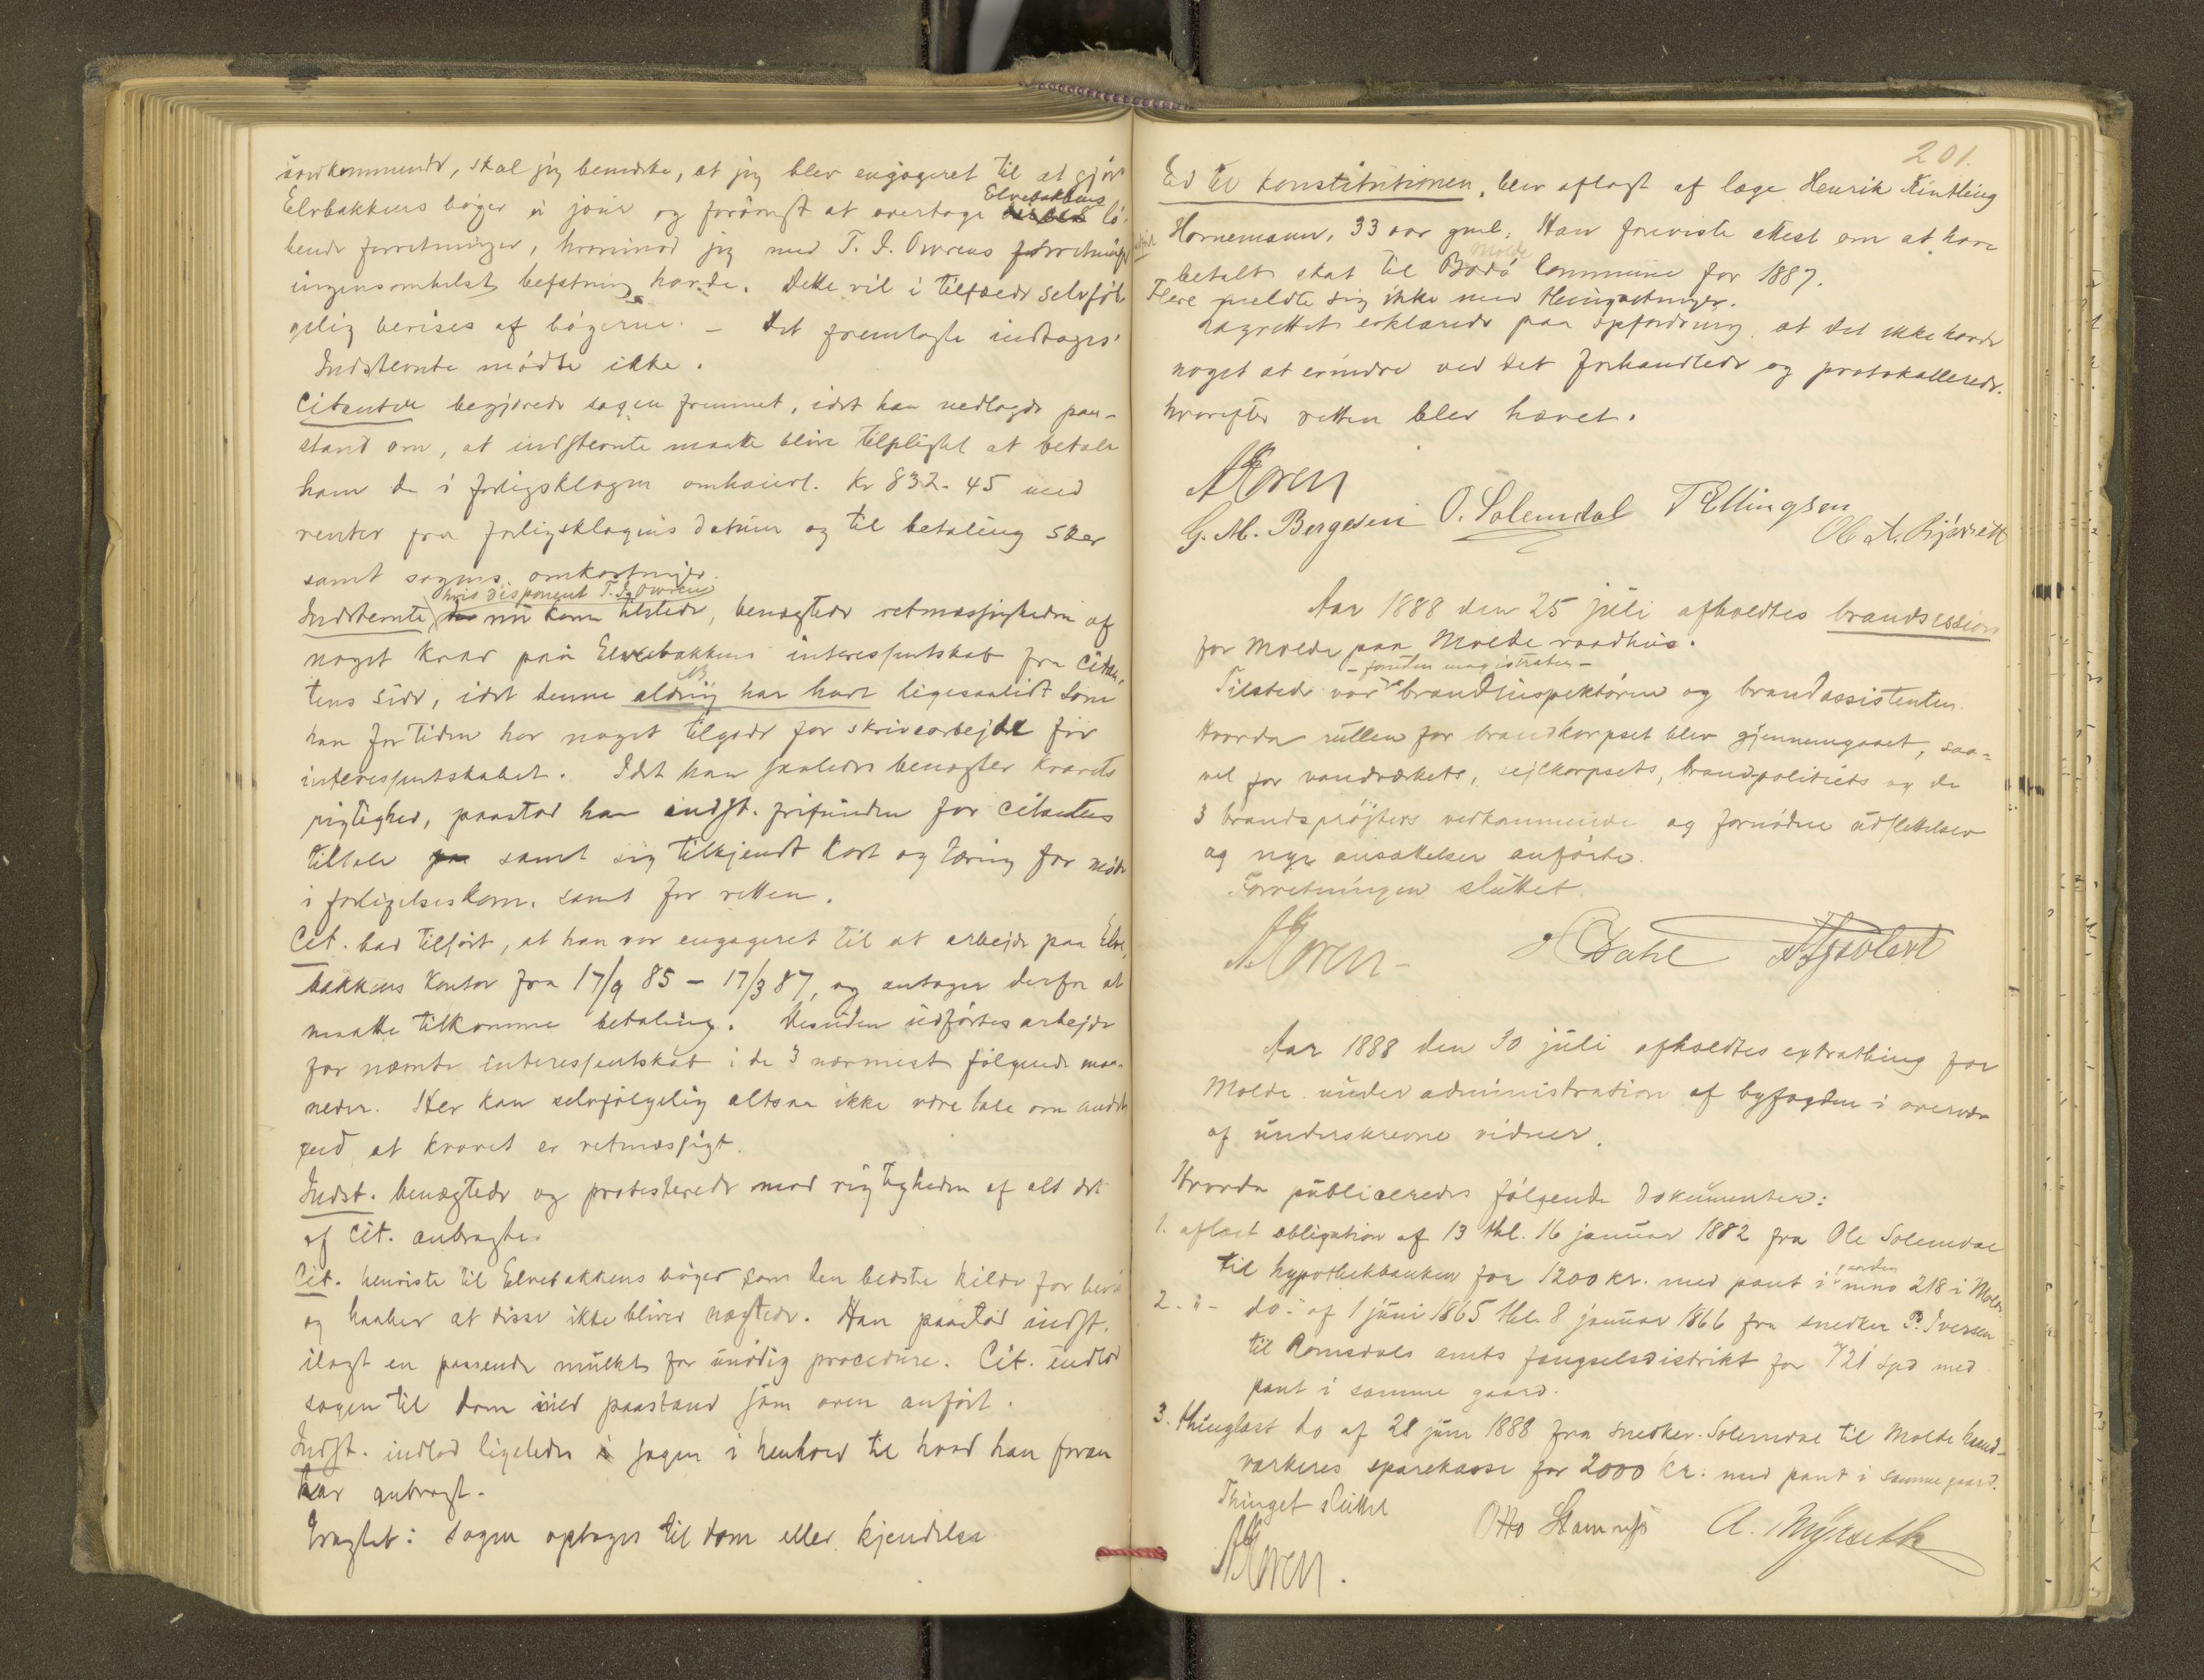 vedkommende, skal jeg bemerke, at jeg blev engageret til at gjøre
Elvbakkens bøger à jour og forøvrigt at overtage Elvebakkens lø-
bende forretninger, hvorimod jeg med T. J. Owrens forretning
ingensomhelst befatning havde. Dette vil i tilfælde selvføl-
gelig bevises af bøgerne. – Det fremlagte indtages.
Indstevnte mødte ikke.
Citanten begjærede sagen fremmet, idet han nedlagde paa-
stand om, at indstevnte maatte blive tilpligtet at betale
ham de i forligsklagen omhandl. Kr 832.45 med
renter fra forligsklagens datum og til betaling sker
samt sagens omkostninger.
Indstevnte, hvis disponent T. J. Owren nu kom tilstede, benægtede retmæssigheden af
noget krav paa Elvebakkens interessentskab fra citan-
tens side, idet denne aldrig har havt ligesaalidt som
han for tiden har noget tilgode for skrivearbejde for
interessentskabet. Idet han saaledes benægter kravets
rigtighed, paastod han indst. frifunden for citantens
tiltale samt sig tilkjendt kost og tæring for møde
i forligelseskom. samt for retten.
Cit. bad tilført, at han var engageret til at arbejde paa Elve-
bakkens kontor fra 17/9 85 – 17/3 87, og antager derfor at
maatte tilkomme betaling. Desuden udførtes arbejde
for nævnte interessentskab i de 3 nærmest følgende maa-
neder. Her kan selvfølgelig altsaa ikke være tale om andet
end at kravet er retmæssigt.
Indst. benægtede og protesterede mod rigtigheden af alt det
af cit. anbragte.
Cit. henviste til Elvebakkens bøger som den bedste kilde for bevis
og haaber at disse ikke bliver nægtede. Han paastod indst.
ilagt en passende mulkt for unødig procedure. Cit. indlod
sagen til dom med paastand som oven anført.
Indst. indlod ligeledes sagen i henhold til hvad han foran
har anbragt.
Eragtet: sagen optages til dom eller kjendelse
201.
Ed til konstitutionen, blev aflagt af læge Henrik Rintling
Hornemann, 33 aar gml. Han foreviste attest om at have
betalt skat til Bodø Commune for 1887.
Molde
Flere meldte sig ikke med thingsætninger.
Lagrettet erklærede paa opfordring at det ikke havde
noget at erindre ved det forhandlede og protokollerede.
hvorefter retten blev hævet.
G. M. Bergesen O. Solemdal T Ellingsen
Aar 1888 den 25 juli afholdtes brandsession
for Molde paa Molde raadhus.
Tilstede var – foruden magistraten – brandinspektøren og brandassistenten.
Hvorda rullen for brandkorpset blev gjennemgaaet, saa-
vel for vandværkets, sejlkorpsets, brandpolitiets og de
3 brandsprøjters vedkommende og fornødne udslettelser
og nye ansættelser anførte.
Forretningen sluttet.
Dahl
Aar 1888 den 30 juli afholdtes extrathing for
Molde under administration af byfogden i overvær
af underskrevne vidner.
Hvorda publiceredes følgende dokumenter:
1. aflæst obligation af 13 thl. 16 januar 1882 fra Ole Solemdal
til hypothekbanken for 1200 kr. med pant i gaarden mno 218 i Molde
2. – do – af 1 juni 1865 thl. 8 januar 1866 fra snedker P. Iversen
til Romsdals amts fængselsdistrikt for 721 spd med
pant i samme gaard.
3. thinglæst do af 28 juni 1888 fra snedker Solemdal til Molde haand-
værkeres sparekasse for 2000 kr. med pant i samme gaard.
Thinget sluttet
Otto A. Myrseth